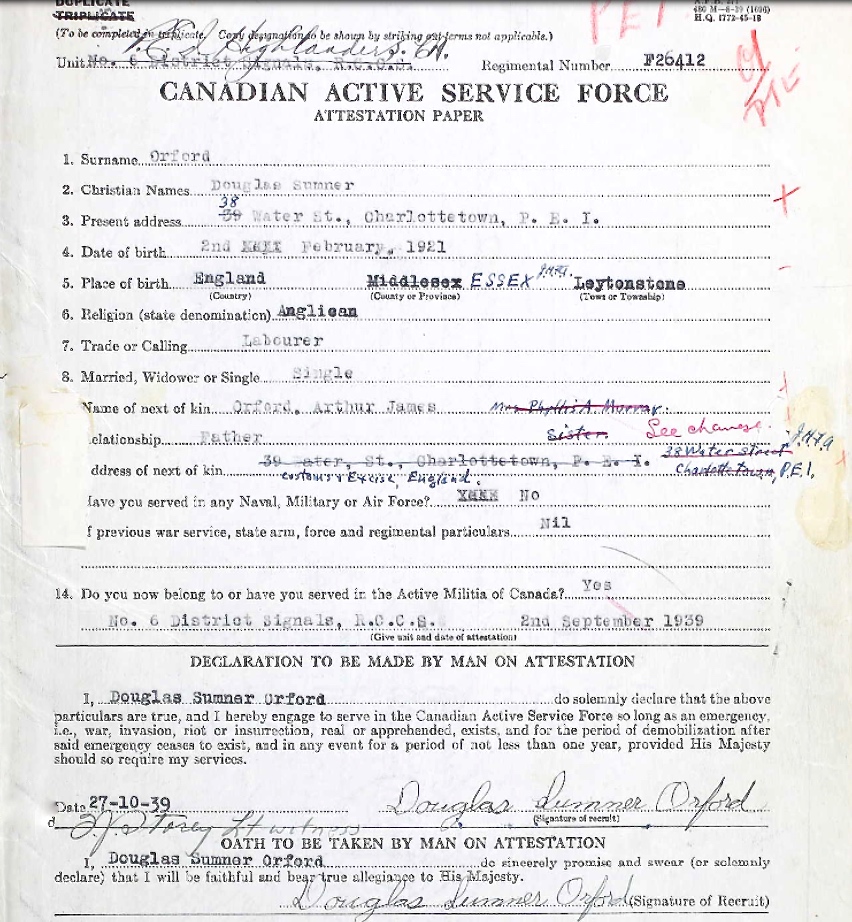 DUPLICATE
TRIPLICATE
480 M—8-39 (1696)
H.Q. 1772-45-18
PEI
(To be completed in triplicate. Copy designation to be shown by striking out terms not applicable.)
P.E.I. Highlanders
Unit No. 6 District Signals, R.C.C.S. Regimental Number F26412
CANADIAN ACTIVE SERVICE FORCE
ATTESTATION PAPER
1. Surname Orford
2. Christian Names Douglas Sumner
38
3. Present address 39 Water St., Charlottetown, P. E. I.
4. Date of birth 2nd February, 1921
5. Place of birth England Middlesex ESSEX Leytonstone
(Country) (County or Province) (Town or Township)
6. Religion (state denomination) Anglican
7. Trade or Calling Labourer
8. Married, Widower or Single Single
Name of next of kin Orford, Arthur James Mrs Phyllis A. Murray.
elationship Father Sister. See change.
ddress of next of kin 39 ater, St., Charlottetown, P. E. I. 38 Water Street
Customs & Excise, England. Charlottetown, P.E.I.
Have you served in any Naval, Military or Air Force? No
f previous war service, state arm, force and regimental particulars Nil
14. Do you now belong to or have you served in the Active Militia of Canada? Yes
No. 6 District Signals, R.C.C.S. 2nd September 1939
(Give unit and date of attestation)
DECLARATION TO BE MADE BY MAN ON ATTESTATION
I, Douglas Sumner Orford do solemnly declare that the above
particulars are true, and I hereby engage to serve in the Canadian Active Service Force so long as an emergency,
i.e., war, invasion, riot or insurrection, real or apprehended, exists, and for the period of demobilization after
said emergency ceases to exist, and in any event for a period of not less than one year, provided His Majesty
should so require my services.
Date 27-10-39 Douglas Sumner Orford
(Signature of recruit)
Storey Lt witness
OATH TO BE TAKEN BY MAN ON ATTESTATION
I, Douglas Sumner Orford do sincerely promise and swear (or solemnly
declare) that I will be faithful and bear true allegiance to His Majesty.
Douglas Sumner Orford (Signature of Recruit)